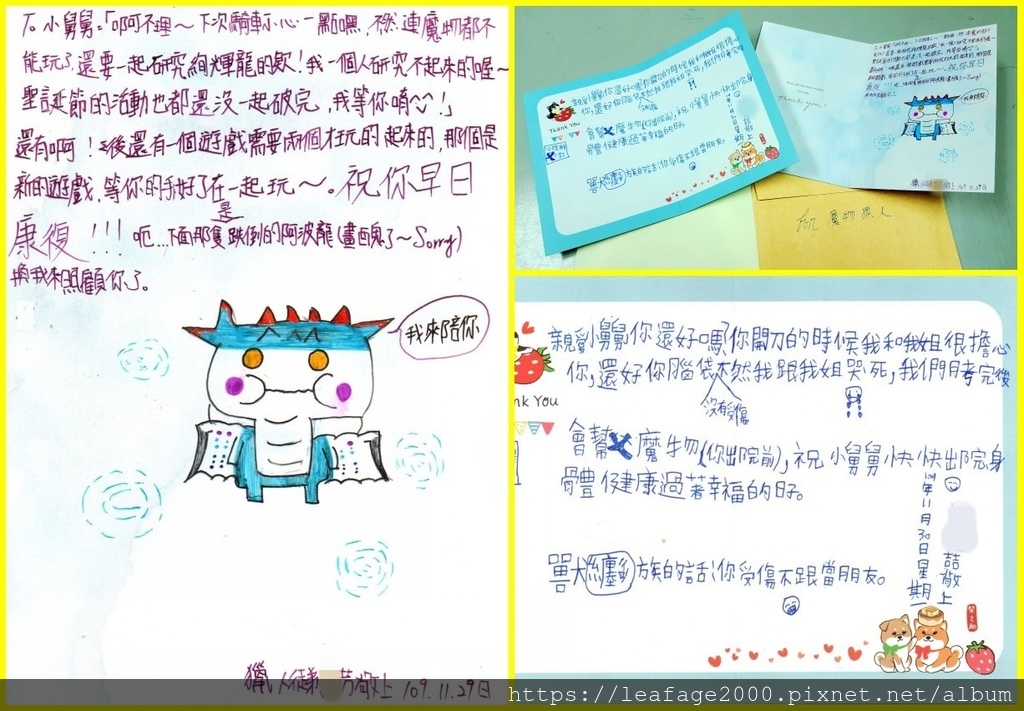 To 小舅舅:「叩阿不理~下次騎車小心一點嘿,不然連魔物都不
能玩了,還要一起研究絢輝龍的欸!我一個人研究不起來的喔~
聖誕節的活動也都還沒一起破完,我等你唷^^!」
還有啊!之後還有一個遊戲需要兩個才玩的起來的,那個是
新的遊戲,等你的手好了在一起玩~。祝你早日
康復!!!呃...下面那隻是跌倒的阿波龍(畫醜了~Sorry)
換我來照顧你了。
我來陪你
獵人徒弟 芳敬上 109.11.29日
Thank You
Thank you!
To: 魔物獵人
nk You
親愛小舅舅你還好嗎?你開刀的時候我和我姐很擔心
你,還好你腦袋沒有受傷不然我跟我姐哭死,我們月考完後
會幫 魔物(你出院前),祝小舅舅快快出院身
體健康過著幸福的日子。
獸纏族的話:你受傷不跟當朋友。
109年11月30日星期一
喆敬上
https://leafage2000.pixnet.net/album